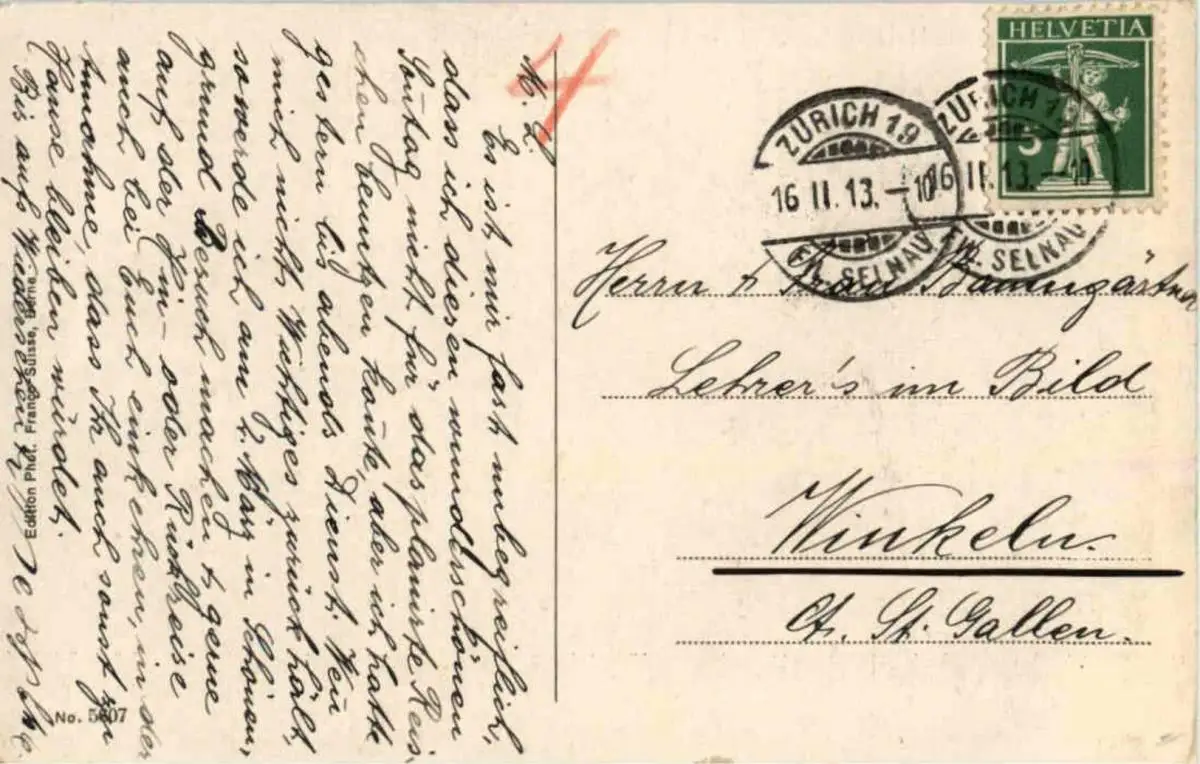 M. L.
Es ist mir fast unbegreiflich,
dass ich diesen wunderschönen
Sontag nicht für das planirte Reis-
chen benutzen konnte, aber ich hatte
gestern bis abends Dienst. Wen
mich nichts Wichtiges zurück hält,
so werde ich am 2. März in Schönen-
grund Besuch machen & gerne
auf der Hin- oder Rückreise
auch bei Euch einkehren, in der
Annahme, dass Ihr auch sonst zu
Hause bleiben würdet.
Bis aufs Wiedersehen
HELVETIA
5
ZÜRICH 19
16 II. 13. – 10
FIL. SELNAU
ZÜRICH 19
16 II. 13. – 10
FIL. SELNAU
Herrn & Frau Baumgärtner
Lehrer's im Bild
Winkeln.
Ct. St. Gallen.
Edition Phot. Franco-Suisse, Berne
No. 5607